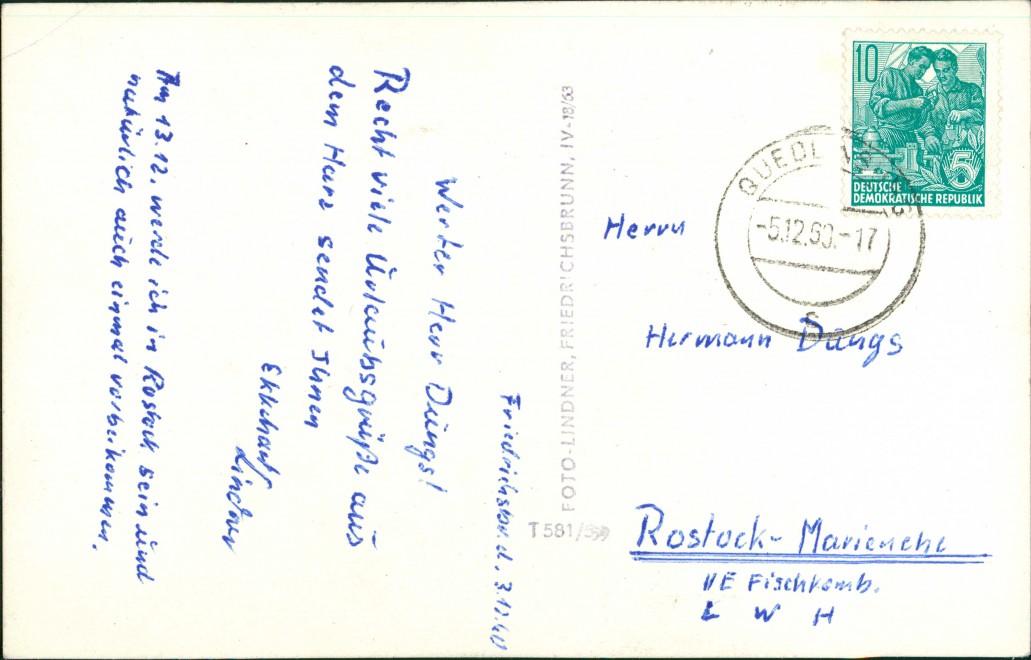 Friedrichsbr. d. 3.12.60
Werter Herr Düngs!
Recht viele Urlaubsgrüße aus
dem Harz sendet Ihnen
Ekkehart
Lindner
Am 13.12. werde ich in Rostock sein und
natürlich auch einmal vorbeikommen.
FOTO-LINDNER, FRIEDRICHSBRUNN, IV-18/63
T 581/
10
5
DEUTSCHE
DEMOKRATISCHE REPUBLIK
QUEDL
-5.12.60.-17
Herrn
Hermann Düngs
Rostock-Marienehe
VE Fischkomb.
L W H